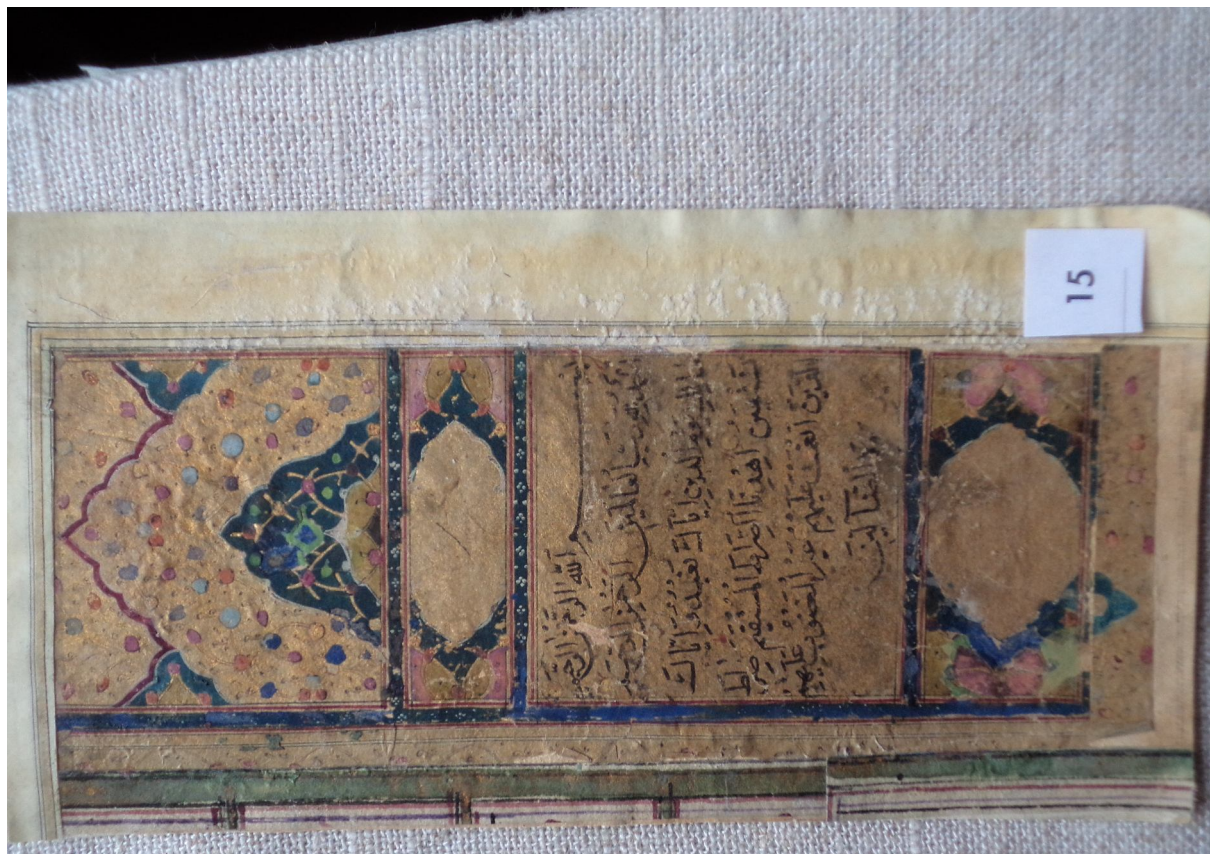 بسم الله الرحمن الرحيم
الحمد لله رب العالمين الرحمن الرحيم
مالك يوم الدين اياك نعبد و اياك
نستعين اهدنا الصراط المستقيم صراط
الذين انعمت عليهم غير المغضوب عليهم
ولا الضالين
15